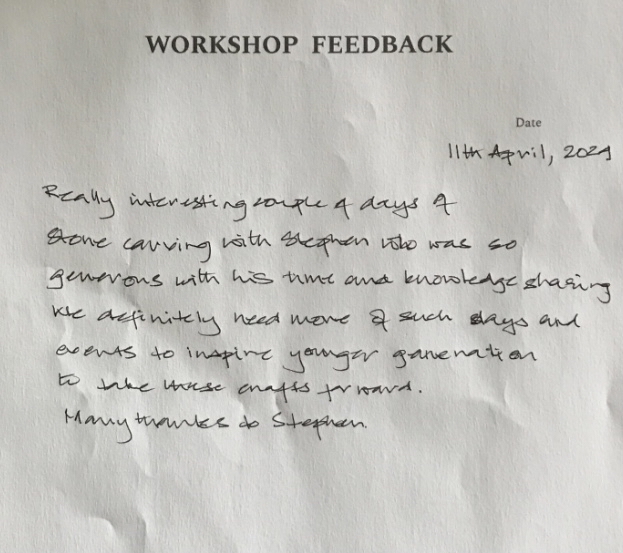 WORKSHOP FEEDBACK
Date
11th April, 2024
Really interesting couple of days of
stone carving with Stephen who was so
generous with his time and knowledge sharing
We definitely need more of such days and
events to inspire younger generation
to take these crafts forward.
Many thanks to Stephen.